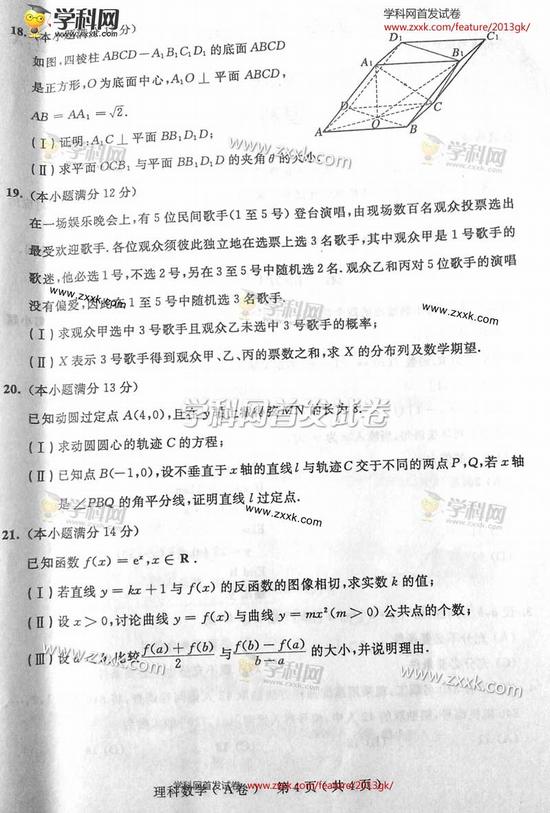 学科网
ZXXK.COM
学科网首发试卷
www.zxxk.com/feature/2013gk/
18. (本小题满分12分)
如图,四棱柱ABCD-A₁B₁C₁D₁的底面ABCD
是正方形,O为底面中心,A₁O⊥平面ABCD,
AB=AA₁=√2.
(Ⅰ)证明:A₁C⊥平面BB₁D₁D;
(Ⅱ)求平面OCB₁与平面BB₁D₁D的夹角θ的大小.
D₁ C₁
A₁ B₁
D C
O
A B
www.zxxk.com
学科网
ZXXK.COM
19. (本小题满分12分)
在一场娱乐晚会上,有5位民间歌手(1至5号)登台演唱,由现场数百名观众投票选出
最受欢迎歌手.各位观众须彼此独立地在选票上选3名歌手,其中观众甲是1号歌手的
歌迷,他必选1号,不选2号,另在3至5号中随机选2名.观众乙和丙对5位歌手的演唱
没有偏爱,因此在1至5号中随机选3名歌手.
www.zxxk.com
www.zxxk.com
(Ⅰ)求观众甲选中3号歌手且观众乙未选中3号歌手的概率;
(Ⅱ)X表示3号歌手得到观众甲、乙、丙的票数之和,求X的分布列及数学期望.
20. (本小题满分13分)
学科网首发试卷
已知动圆过定点A(4,0),且在y轴上截得弦MN的长为8.
(Ⅰ)求动圆圆心的轨迹C的方程;
(Ⅱ)已知点B(-1,0),设不垂直于x轴的直线l与轨迹C交于不同的两点P,Q,若x轴
是∠PBQ的角平分线,证明直线l过定点.
学科网
www.zxxk.com
21. (本小题满分14分)
已知函数f(x)=eˣ,x∈R.
(Ⅰ)若直线y=kx+1与f(x)的反函数的图像相切,求实数k的值;
(Ⅱ)设x>0,讨论曲线y=f(x)与曲线y=mx²(m>0)公共点的个数;
(Ⅲ)设a<b,比较(f(a)+f(b))/2与(f(b)-f(a))/(b-a)的大小,并说明理由.
www.zxxk.com
学科网
ZXXK.COM
www.zxxk.com
学科网首发试卷
www.zxxk.com/feature/2013gk/
理科数学(A卷) 第4页(共4页)